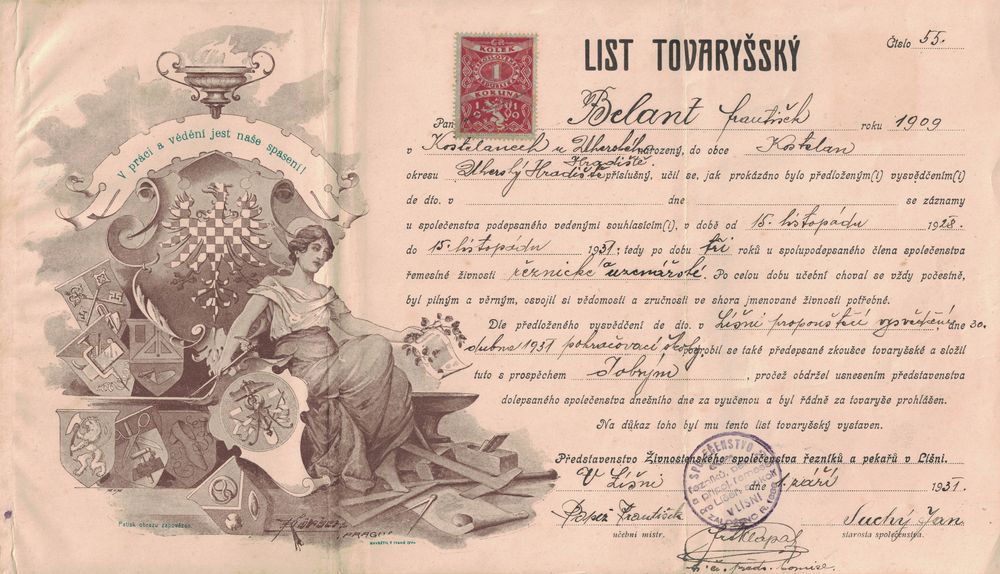 V práci a vědění jest naše spasení!
LIST TOVARYŠSKÝ
Číslo 55.
KOLEK
1
KORUNA
Pan Belant František roku 1909
v Kostelancch u Uherskéh narozený, do obce Kostelan
Hradiště
okresu Uherský Hradiště příslušný, učil se, jak prokázáno bylo předloženým(i) vysvědčením(i)
de dto. v dne se záznamy
u společenstva podepsaného vedenými souhlasícím(i), v době od 15. listopádu 1928.
do 15. listopádu 1931; tedy po dobu tři roků u spolupodepsaného člena společenstva
řemeslné živnosti řeznické a uzenářské. Po celou dobu učební choval se vždy počestně,
byl pilným a věrným, osvojil si vědomosti a zručnosti ve shora jmenované živnosti potřebné.
Dle předloženého vysvědčení de dto. v Líšni propouštěcí vysvědčení dne 30.
dubna 1931 pokračovací školy podrobil se také předepsané zkoušce tovaryšské a složil
tuto s prospěchem Dobrým, pročež obdržel usnesením představenstva
dolepsaného společenstva dnešního dne za vyučenou a byl řádně za tovaryše prohlášen.
Na důkaz toho byl mu tento list tovaryšský vystaven.
Představenstvo Živnostenského společenstva řezníků a pekařů v Líšni.
V Líšni dne 1. září 1931.
SPOLEČENSTVO
v LÍŠNI
ZALOŽENO R.
František
učební mistr.
Suchý Jan
starosta společenstva.
Patisk obrazu zapovězen.
PRAGA